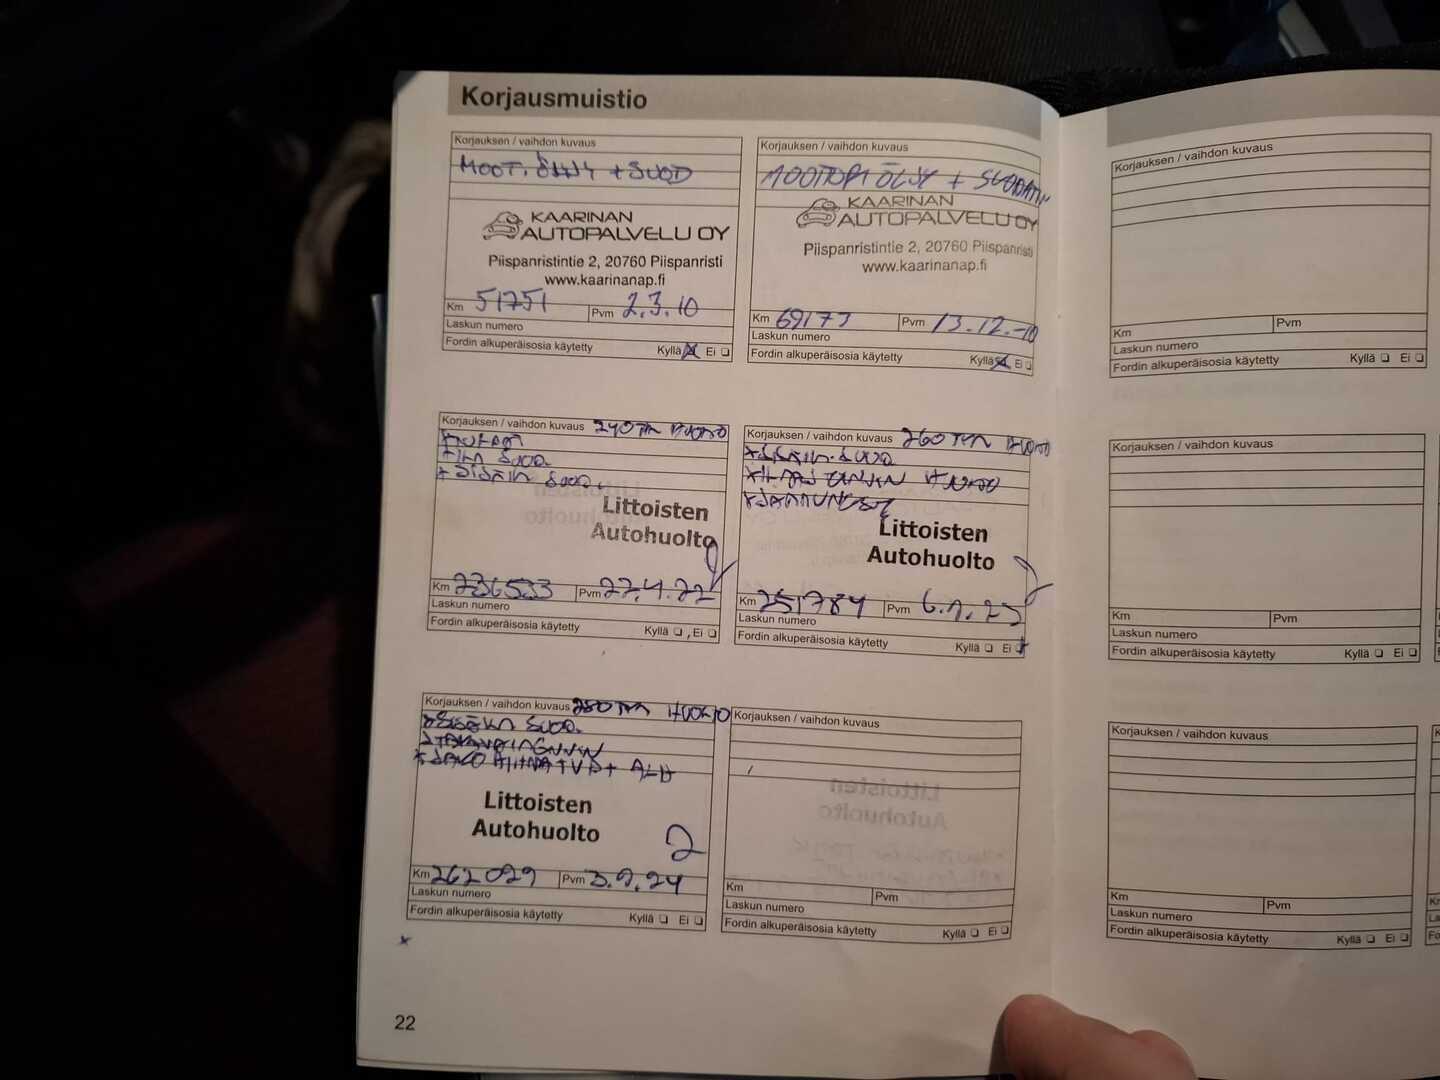 Korjausmuistio
Korjauksen / vaihdon kuvaus
MOOT. ÖLJY + SUOD
KAARINAN
AUTOPALVELU OY
Piispanristintie 2, 20760 Piispanristi
www.kaarinanap.fi
Km 51751 Pvm 2.3.10
Laskun numero
Fordin alkuperäisosia käytetty Kyllä Ei
Korjauksen / vaihdon kuvaus
MOOTTORI ÖLJY + SUODATIN
KAARINAN
AUTOPALVELU OY
Piispanristintie 2, 20760 Piispanristi
www.kaarinanap.fi
Km 69173 Pvm 13.12.-10
Laskun numero
Fordin alkuperäisosia käytetty Kyllä Ei
Korjauksen / vaihdon kuvaus 240 TKM HUOLTO
SUOD.
SUOD.
Littoisten
Autohuolto
Km 236533 Pvm 27.4.22
Laskun numero
Fordin alkuperäisosia käytetty Kyllä Ei
Korjauksen / vaihdon kuvaus 260 TKM HUOLTO
SUOD.
HUOLTO
Littoisten
Autohuolto
Km 251784 Pvm
Laskun numero
Fordin alkuperäisosia käytetty Kyllä Ei
Korjauksen / vaihdon kuvaus 280 TKM HUOLTO
SUOD.
Littoisten
Autohuolto
Km 262029 Pvm 3.9.24
Laskun numero
Fordin alkuperäisosia käytetty Kyllä Ei
Korjauksen / vaihdon kuvaus
Km Pvm
Laskun numero
Fordin alkuperäisosia käytetty Kyllä Ei
22
Korjauksen / vaihdon kuvaus
Km Pvm
Laskun numero
Fordin alkuperäisosia käytetty Kyllä Ei
Korjauksen / vaihdon kuvaus
Km Pvm
Laskun numero
Fordin alkuperäisosia käytetty Kyllä Ei
Korjauksen / vaihdon kuvaus
Km Pvm
Laskun numero
Fordin alkuperäisosia käytetty Kyllä Ei